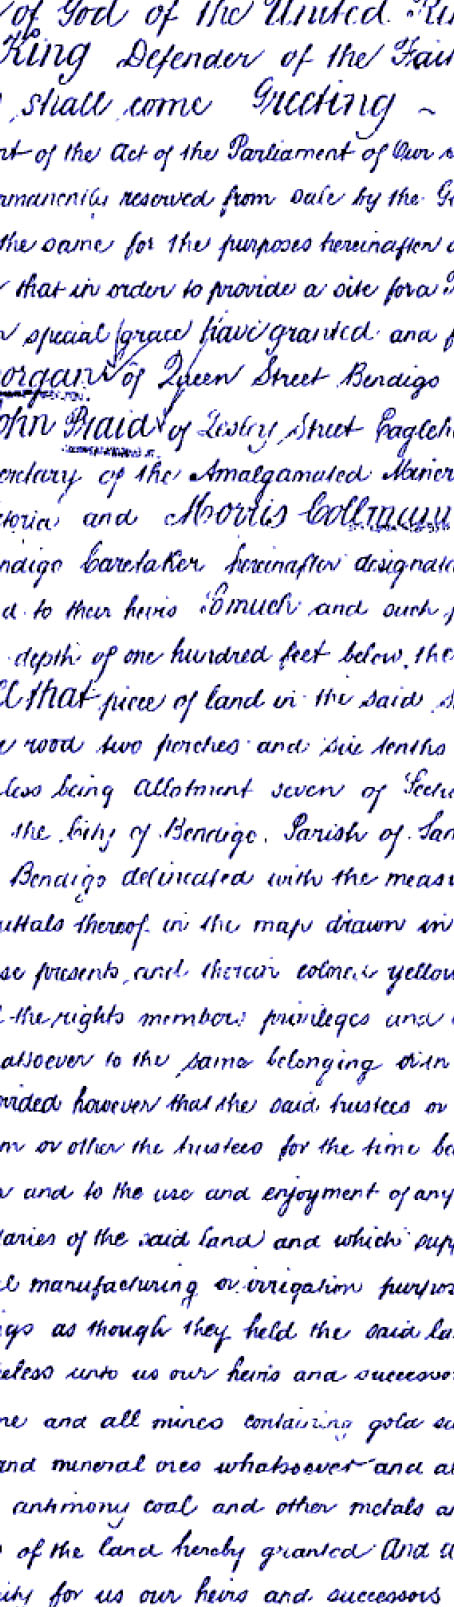 of God of the United
King Defender of the Fait
shall come Greeting ~
nt of the Act of the Parliament of Our
rmanently reserved from sale by the G
the same for the purposes hereinafter
that in order to provide a site for a
special grace have granted and
organ of Queen Street Bendigo
ohn Braid of Lesley Street Eagleh
cretary of the Amalgamated Miner
ctoria and Morris Collmann
ndigo Caretaker hereinafter designate
d to their heirs So much and such
depth of one hundred feet below the
ll that piece of land in the said S
rood two perches and six tenths
less being Allotment seven of Secti
the City of Bendigo Parish of San
Bendigo delineated with the measu
uttals thereof in the map drawn in
se presents and therein colored yellow
the rights members privileges and
atsoever to the same belonging or in
ovided however that the said trustees or
m or other the trustees for the time be
and to the use and enjoyment of any
daries of the said land and which sup
l manufacturing or irrigation purpos
ngs as though they held the said la
eless unto us our heirs and successo
ne and all mines containing gold s
and mineral ores whatsoever and a
antimony coal and other metals a
of the land hereby granted And a
ity for us our heirs and successors